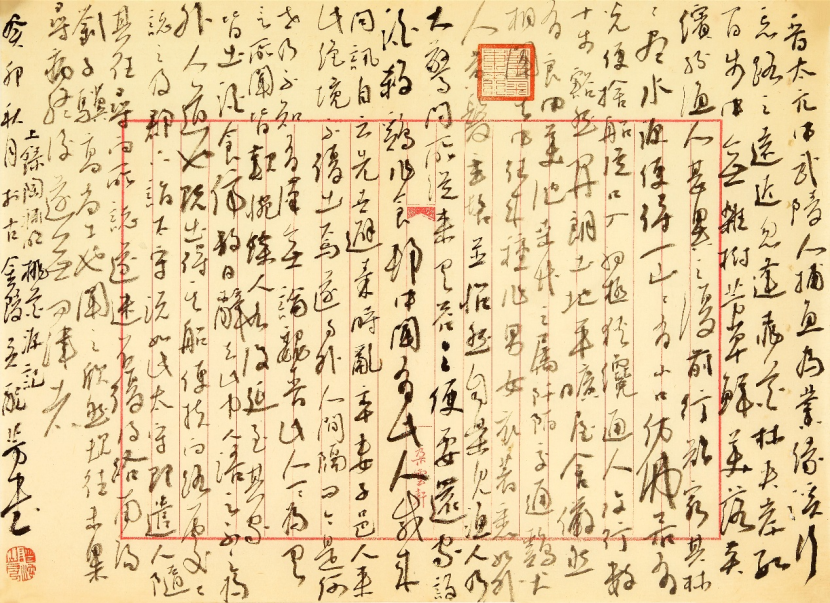 晉太元中武陵人捕魚為業緣溪行
忘路之遠近忽逢桃花林夾岸數
百步中無雜樹芳草鮮美落英
繽紛漁人甚異之復前行欲窮其林
林盡水源便得一山山有小口仿佛若有
光便捨船從口入初極狹纔通人復行數
十步豁然開朗土地平曠屋舍儼然
有良田美池桑竹之屬阡陌交通鷄犬
相聞其中往來種作男女衣著悉如外
人黃髮垂髫並怡然自樂見漁人乃
大驚問所從來具答之便要還家設
酒殺鷄作食村中聞有此人咸來
問訊自云先世避秦時亂率妻子邑人來
此絕境不復出焉遂與外人間隔問今是何
世乃不知有漢無論魏晉此人一一為具
言所聞皆歎惋餘人各復延至其家
皆出酒食停數日辭去此中人語云不為
外人道也既出得其船便扶向路處處
誌之及郡下詣太守說如此太守即遣人隨
其往尋向所誌遂迷不復得路南陽
劉子驥高尚士也聞之欣然規往未果
尋病終後遂無問津者
上錄陶淵明桃花源記
癸卯秋月於古金陵